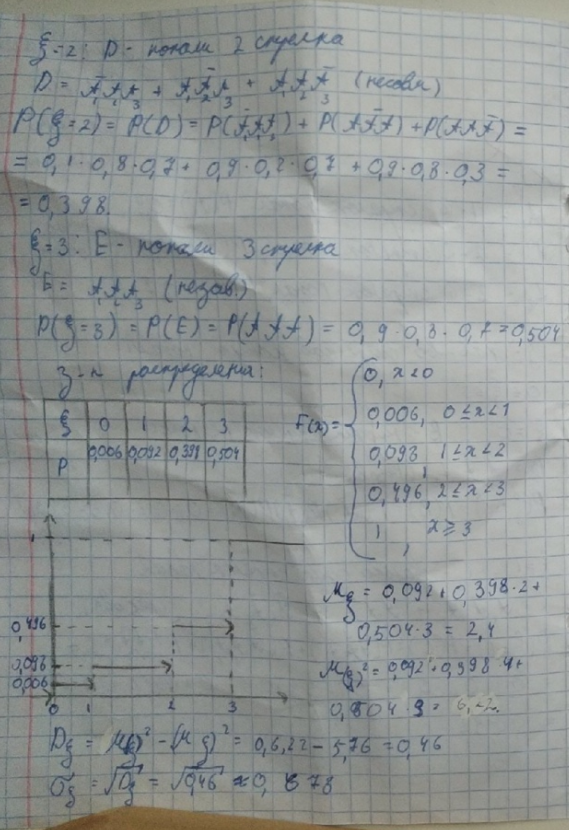 ξ=2: D - попали 2 стрелка
D = Ā₁A₂A₃ + A₁Ā₂A₃ + A₁A₂Ā₃ (несовм)
P(ξ=2) = P(D) = P(ĀAA) + P(AĀA) + P(AAĀ) =
= 0,1·0,8·0,7 + 0,9·0,2·0,7 + 0,9·0,8·0,3 =
= 0,398.
ξ=3: E - попали 3 стрелка
E = A₁A₂A₃ (незав.)
P(ξ=3) = P(E) = P(AAA) = 0,9·0,8·0,7=0,504
з-н распределения:
ξ 0 1 2 3
P 0,006 0,092 0,398 0,504
F(x)=
0, x<0
0,006, 0≤x<1
0,098, 1≤x<2
0,496, 2≤x<3
1, x≥3
1
0,496
0,098
0,006
0 1 2 3
Mξ = 0,092+0,398·2+
0,504·3 = 2,4
M(ξ)² = 0,092+0,398·4+
0,504·9 = 6,22.
Dξ = M(ξ)² - (Mξ)² = 0,6,22 - 5,76 = 0,46
σξ = √Dξ = √0,46 ≈ 0,678